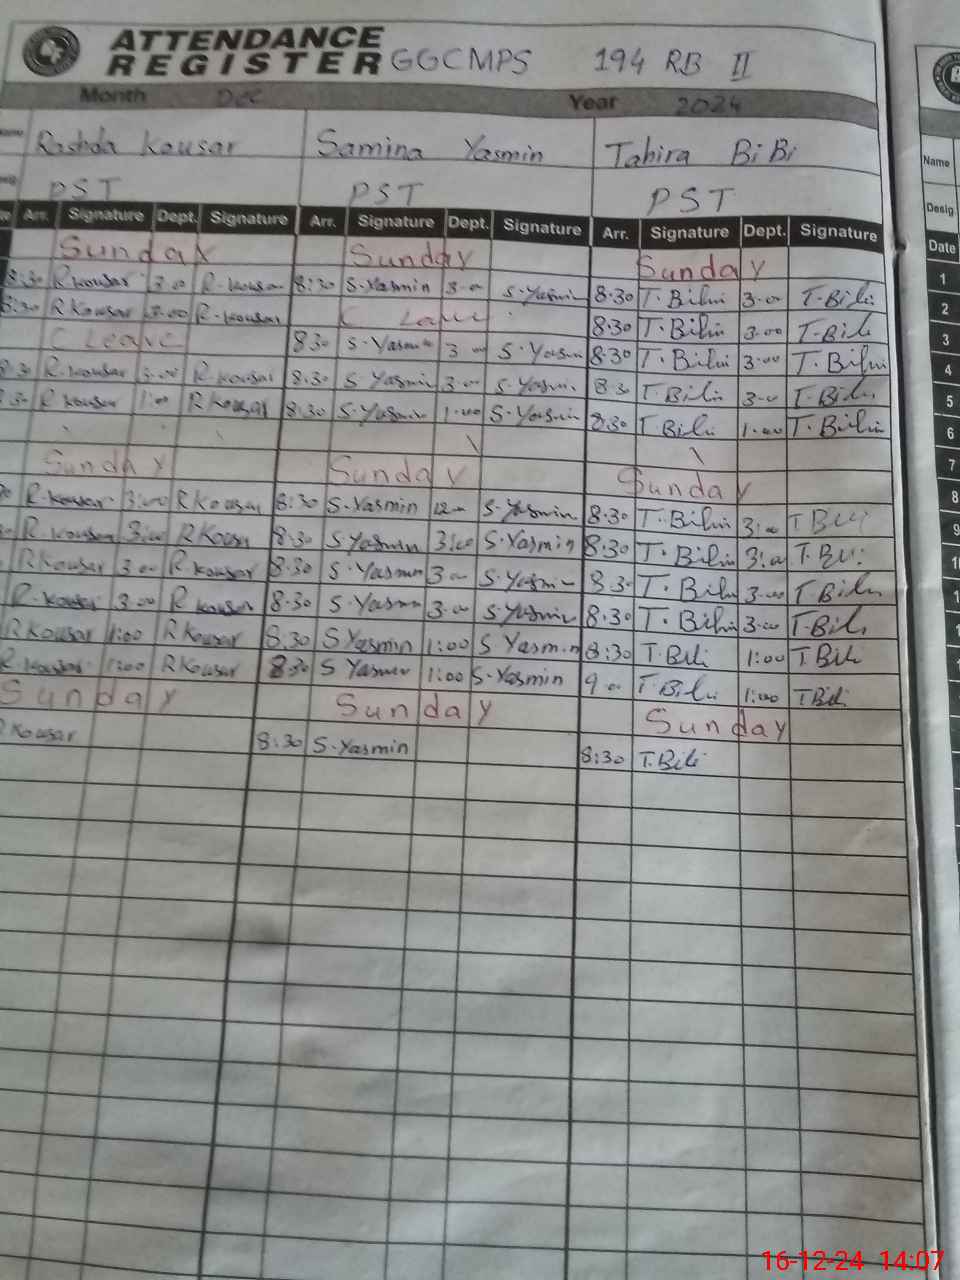 ATTENDANCE
REGISTER GGCMPS 194 RB II
Month Dec Year 2024
Name
Rashda Kousar Samina Yasmin Tahira BiBi
Desig
PST PST PST
Arr. Signature Dept. Signature Arr. Signature Dept. Signature Arr. Signature Dept. Signature
Date
Sunday Sunday Sunday
1
8:30 R kousar 3.00 R-kousar 8:30 S-Yasmin 3.00 S-Yasmin 8.30 T.Bibi 3.00 T-Bibi
2
8:30 R Kousar 3.00 R-kousar C Leave 8:30 T.Bibi 3.00 T-Bibi
3
C Leave 8 30 S-Yasmin 3 00 S-Yasmin 8:30 T.Bibi 3.00 T-Bibi
4
8.30 R Kousar 3.00 R Kousar 8.30 S Yasmin 3.00 S-Yasmin 8.30 T.Bibi 3.00 T-Bibi
5
R Kousar 1:00 R Kousar 8.30 S-Yasmin 1.00 S-Yasmin 8:30 T Bibi 1.00 T-Bibi
6
7
Sunday Sunday Sunday
8
R-kousar 3:00 R Kousar 8:30 S-Yasmin S-Yasmin 8:30 T-Bibi 3:00 T Bibi
9
R-kousar 3:00 R Kousar 8:30 S Yasmin 3:00 S-Yasmin 8:30 T-Bibi 3:00 T.Bibi
R Kousar 3 00 R.kousar 8-30 S-Yasmin 3 00 S-Yasmin 8 3- T.Bibi 3.00 T-Bibi
R-kousar 3.00 R kousar 8-30 S-Yasmin 3.00 S-Yasmin 8:30 T.Bibi 3.00 T-Bibi
R Kousar 1:00 R Kousar 8.30 S Yasmin 1:00 S Yasmin 8:30 T.Bibi 1:00 T Bibi
R-kousar 1:00 R Kousar 8 30 S Yasmin 1:00 S-Yasmin 9 00 T.Bibi 1:00 T Bibi
Sunday Sunday Sunday
R Kousar 8:30 S-Yasmin 8:30 T.Bibi
16-12-24 14:07